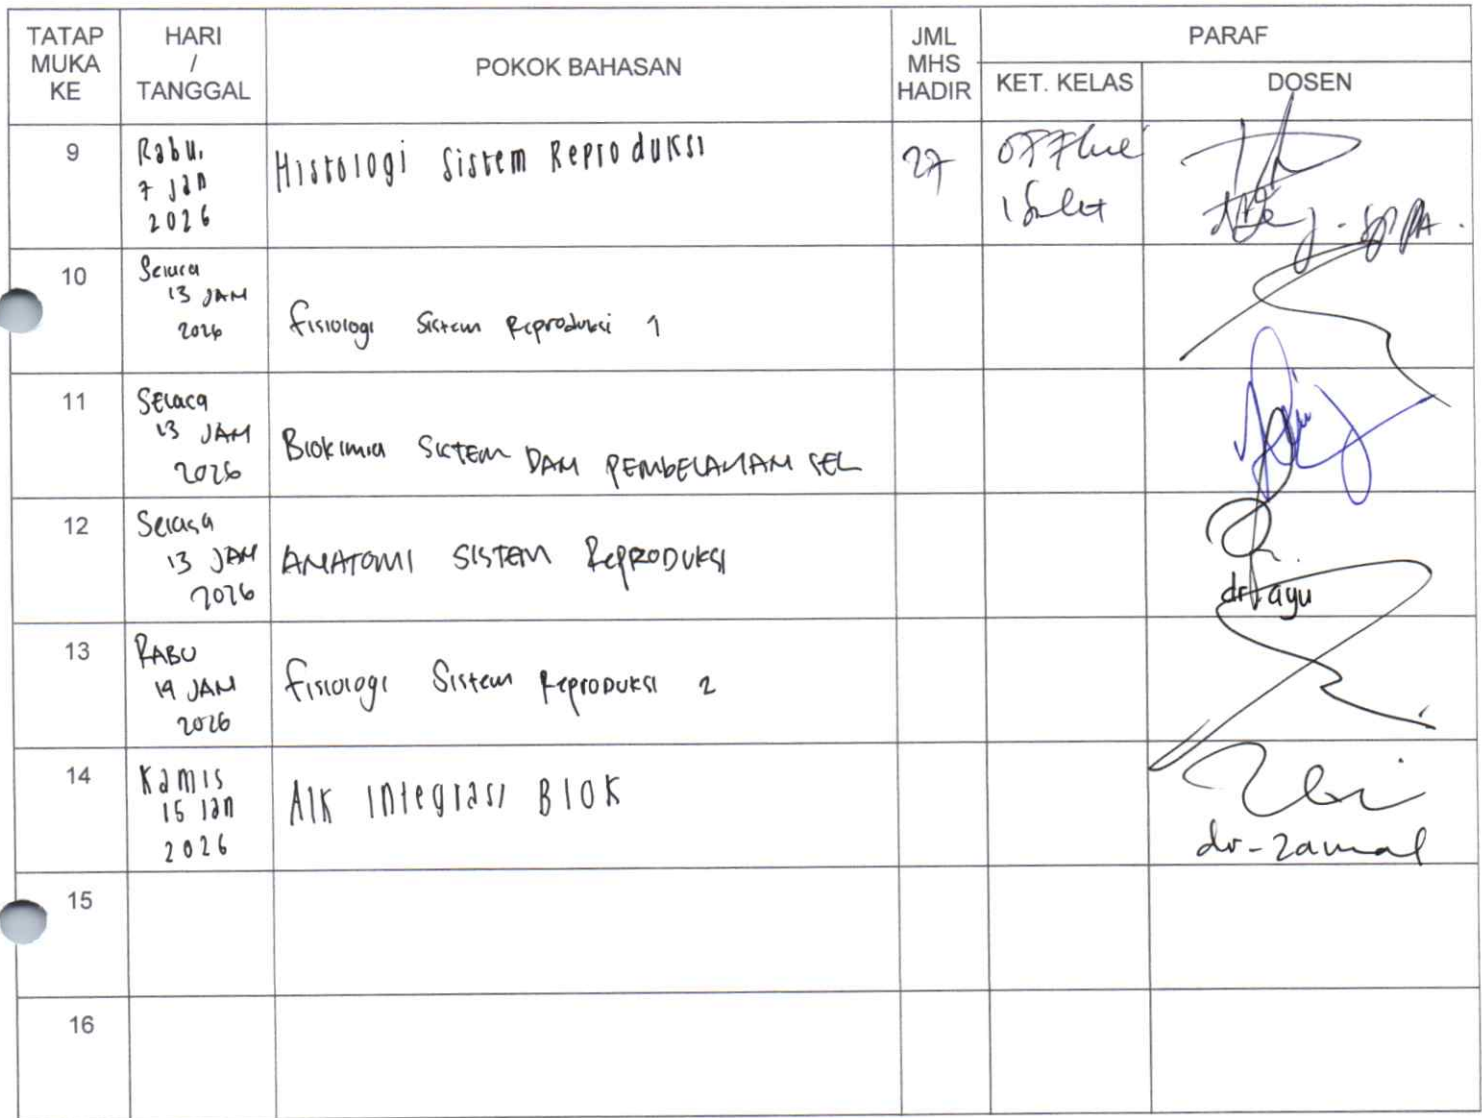 TATAP MUKA KE
HARI / TANGGAL
POKOK BAHASAN
JML MHS HADIR
PARAF
KET. KELAS
DOSEN
9
Rabu,
7 Jan
2026
Histologi Sistem Reproduksi
27
offline
10
Selasa
13 JAN
2026
Fisiologi Sistem Reproduksi 1
11
Selasa
13 JAN
2026
Biokimia SISTEM DAN PEMBELAHAN SEL
12
Selasa
13 JAN
2026
ANATOMI SISTEM REPRODUKSI
dr ayu
13
RABU
14 JAN
2026
Fisiologi Sistem REPRODUKSI 2
14
Kamis
15 Jan
2026
AIK Integrasi Blok
dr-Zamal
15
16